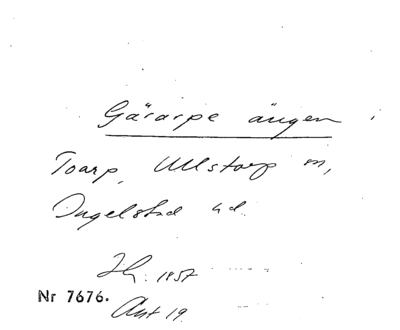 Gärarpe ängen
Toarp, Ullstorp m,
Ingelstad hd.
1857
Nr 7676.
Akt 19